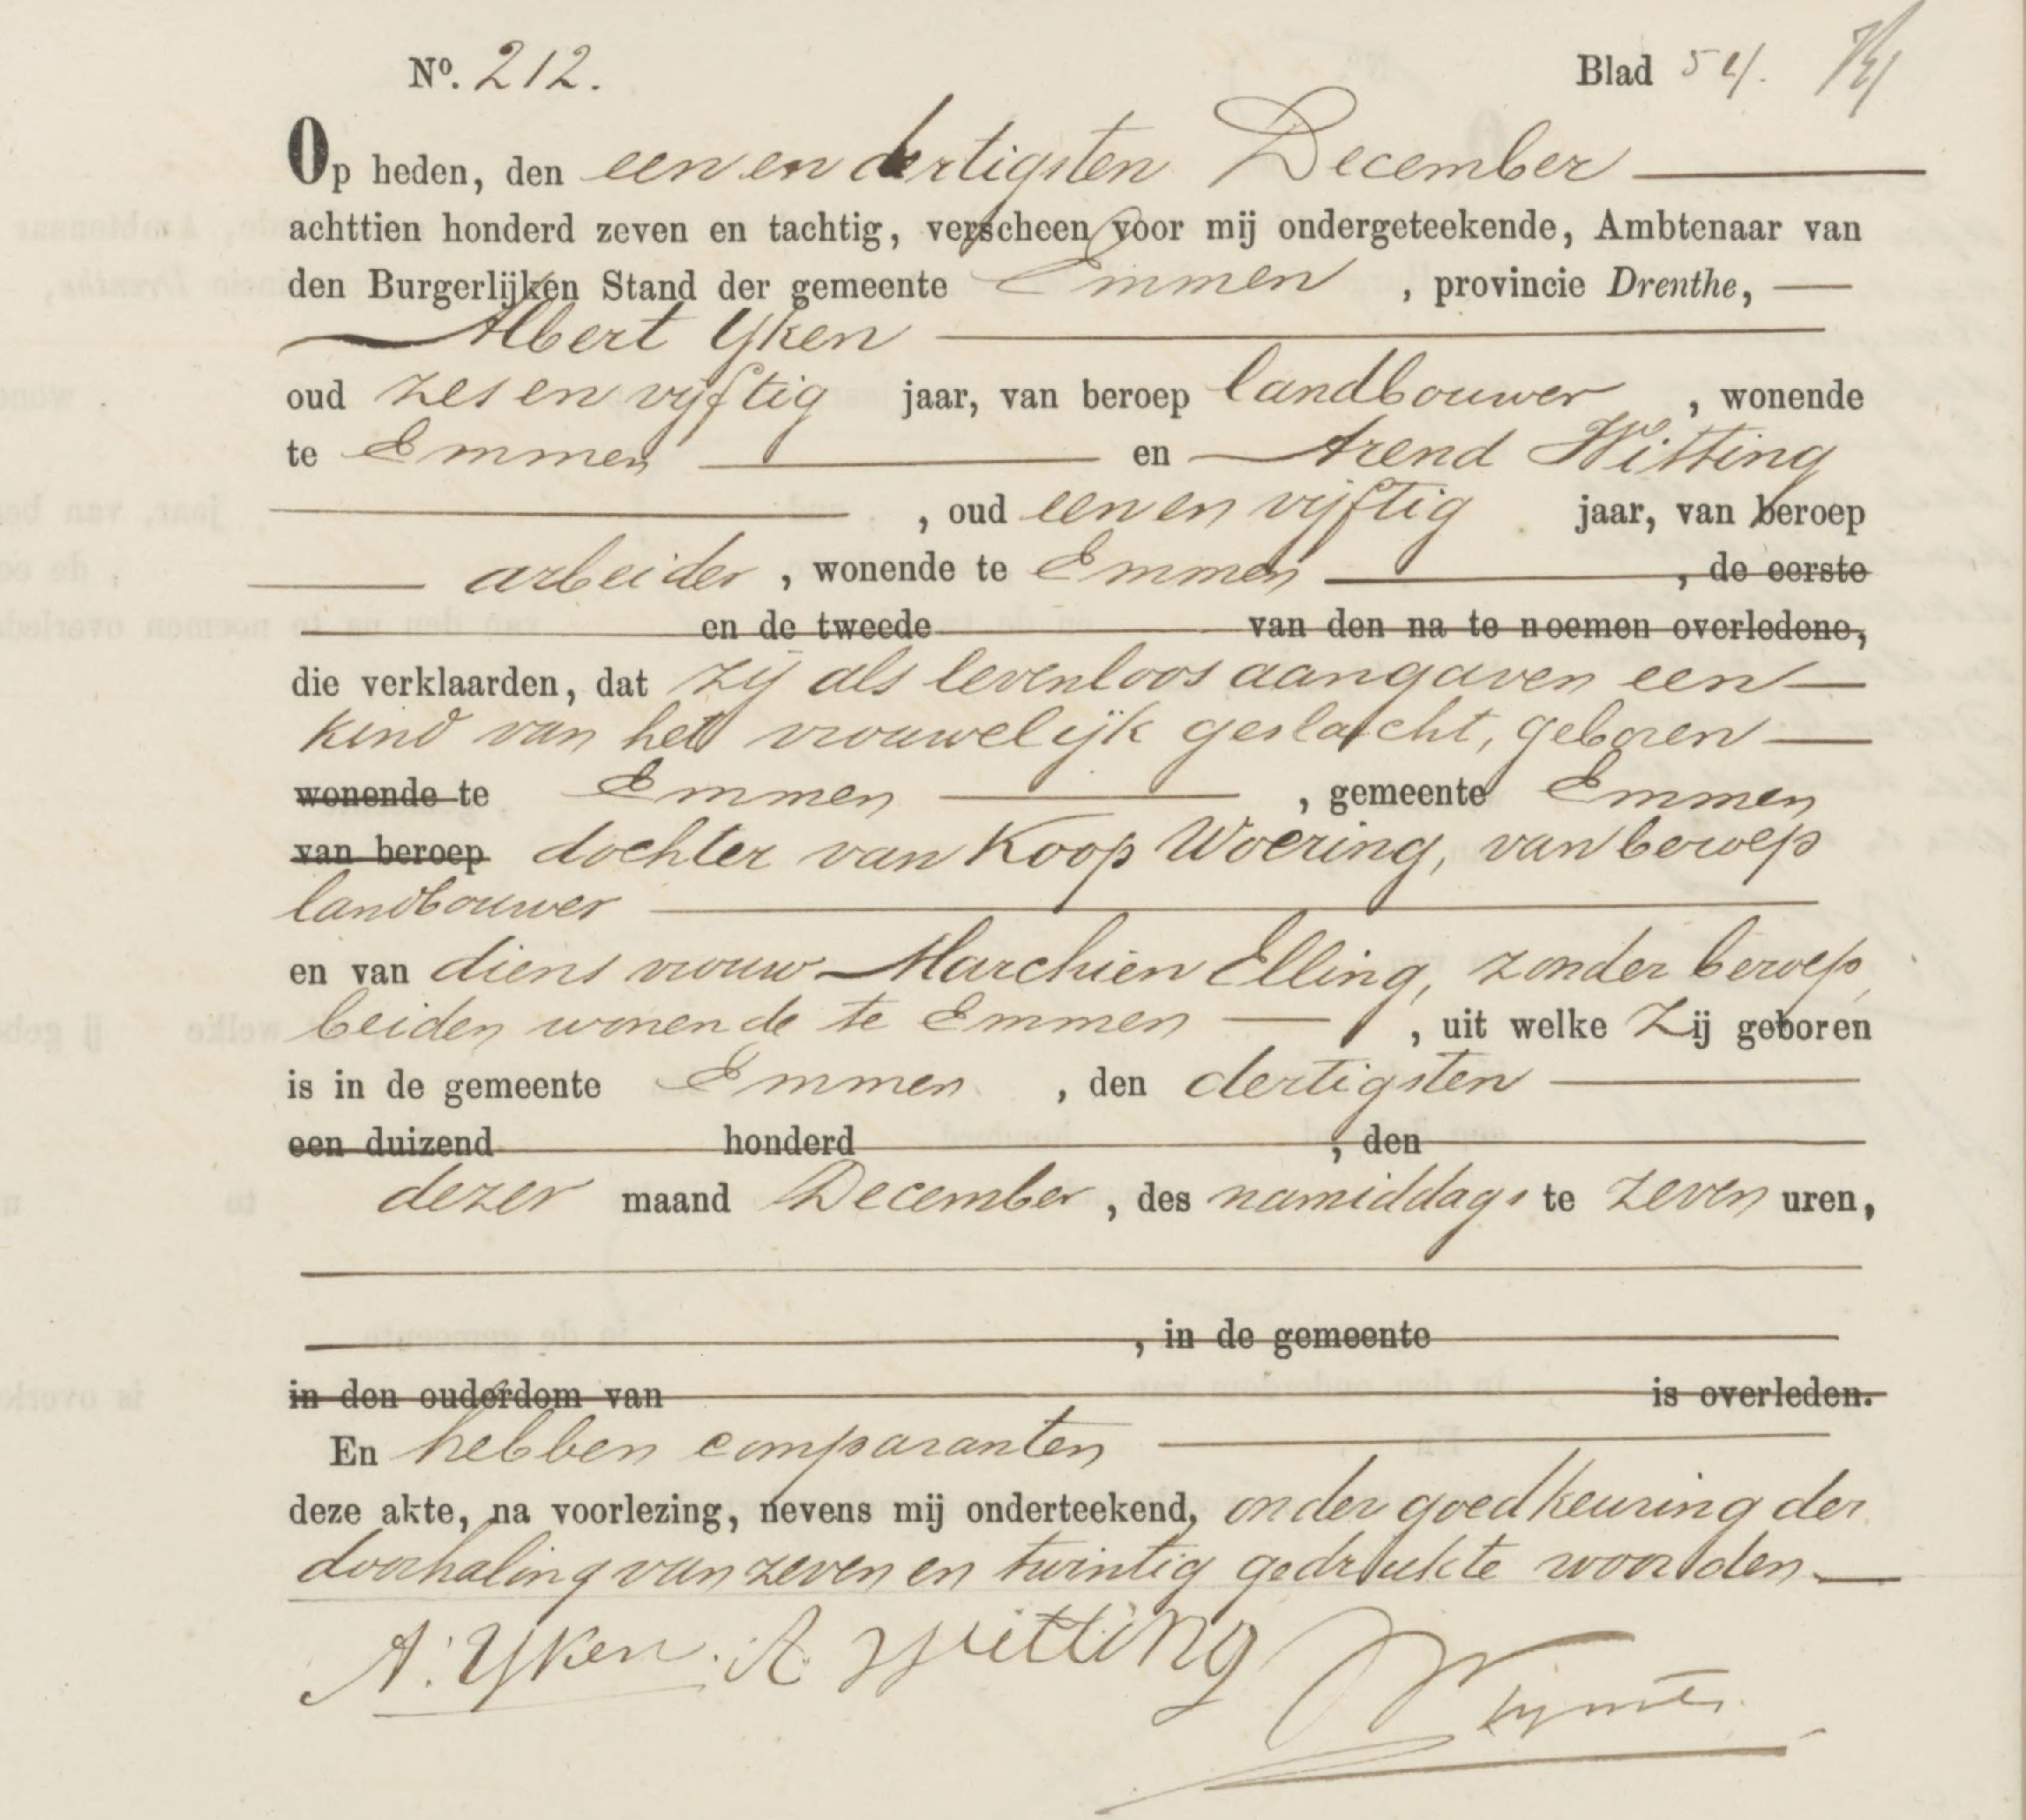 Nº. 212. Blad 54.
Op heden, den een en dertigsten December
achttien honderd zeven en tachtig, verscheen voor mij ondergeteekende, Ambtenaar van
den Burgerlijken Stand der gemeente Emmen, provincie Drenthe,
Albert Yken
oud zes en vijftig jaar, van beroep landbouwer, wonende
te Emmen en Arend Witting
, oud een en vijftig jaar, van beroep
arbeider, wonende te Emmen, de eerste
en de tweede van den na te noemen overledene,
die verklaarden, dat zij als levenloos aangaven een
kind van het vrouwelijk geslacht, geboren
wonende te Emmen, gemeente Emmen
van beroep dochter van Koop Woering, van beroep
landbouwer
en van diens vrouw Marchien Elling, zonder beroep,
beiden wonende te Emmen, uit welke Zij geboren
is in de gemeente Emmen, den dertigsten
een duizend honderd, den
dezer maand December, des namiddags te zeven uren,
, in de gemeente
in den ouderdom van is overleden.
En hebben comparanten
deze akte, na voorlezing, nevens mij onderteekend, onder goedkeuring der
doorhaling van zeven en twintig gedrukte woorden
A. Yken. A Witting